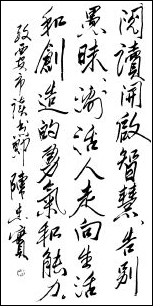 阅讀開啟智慧,告别
愚昧,激活人走向生活
和創造的勇氣和能力.
致西安市读书節 陳忠實